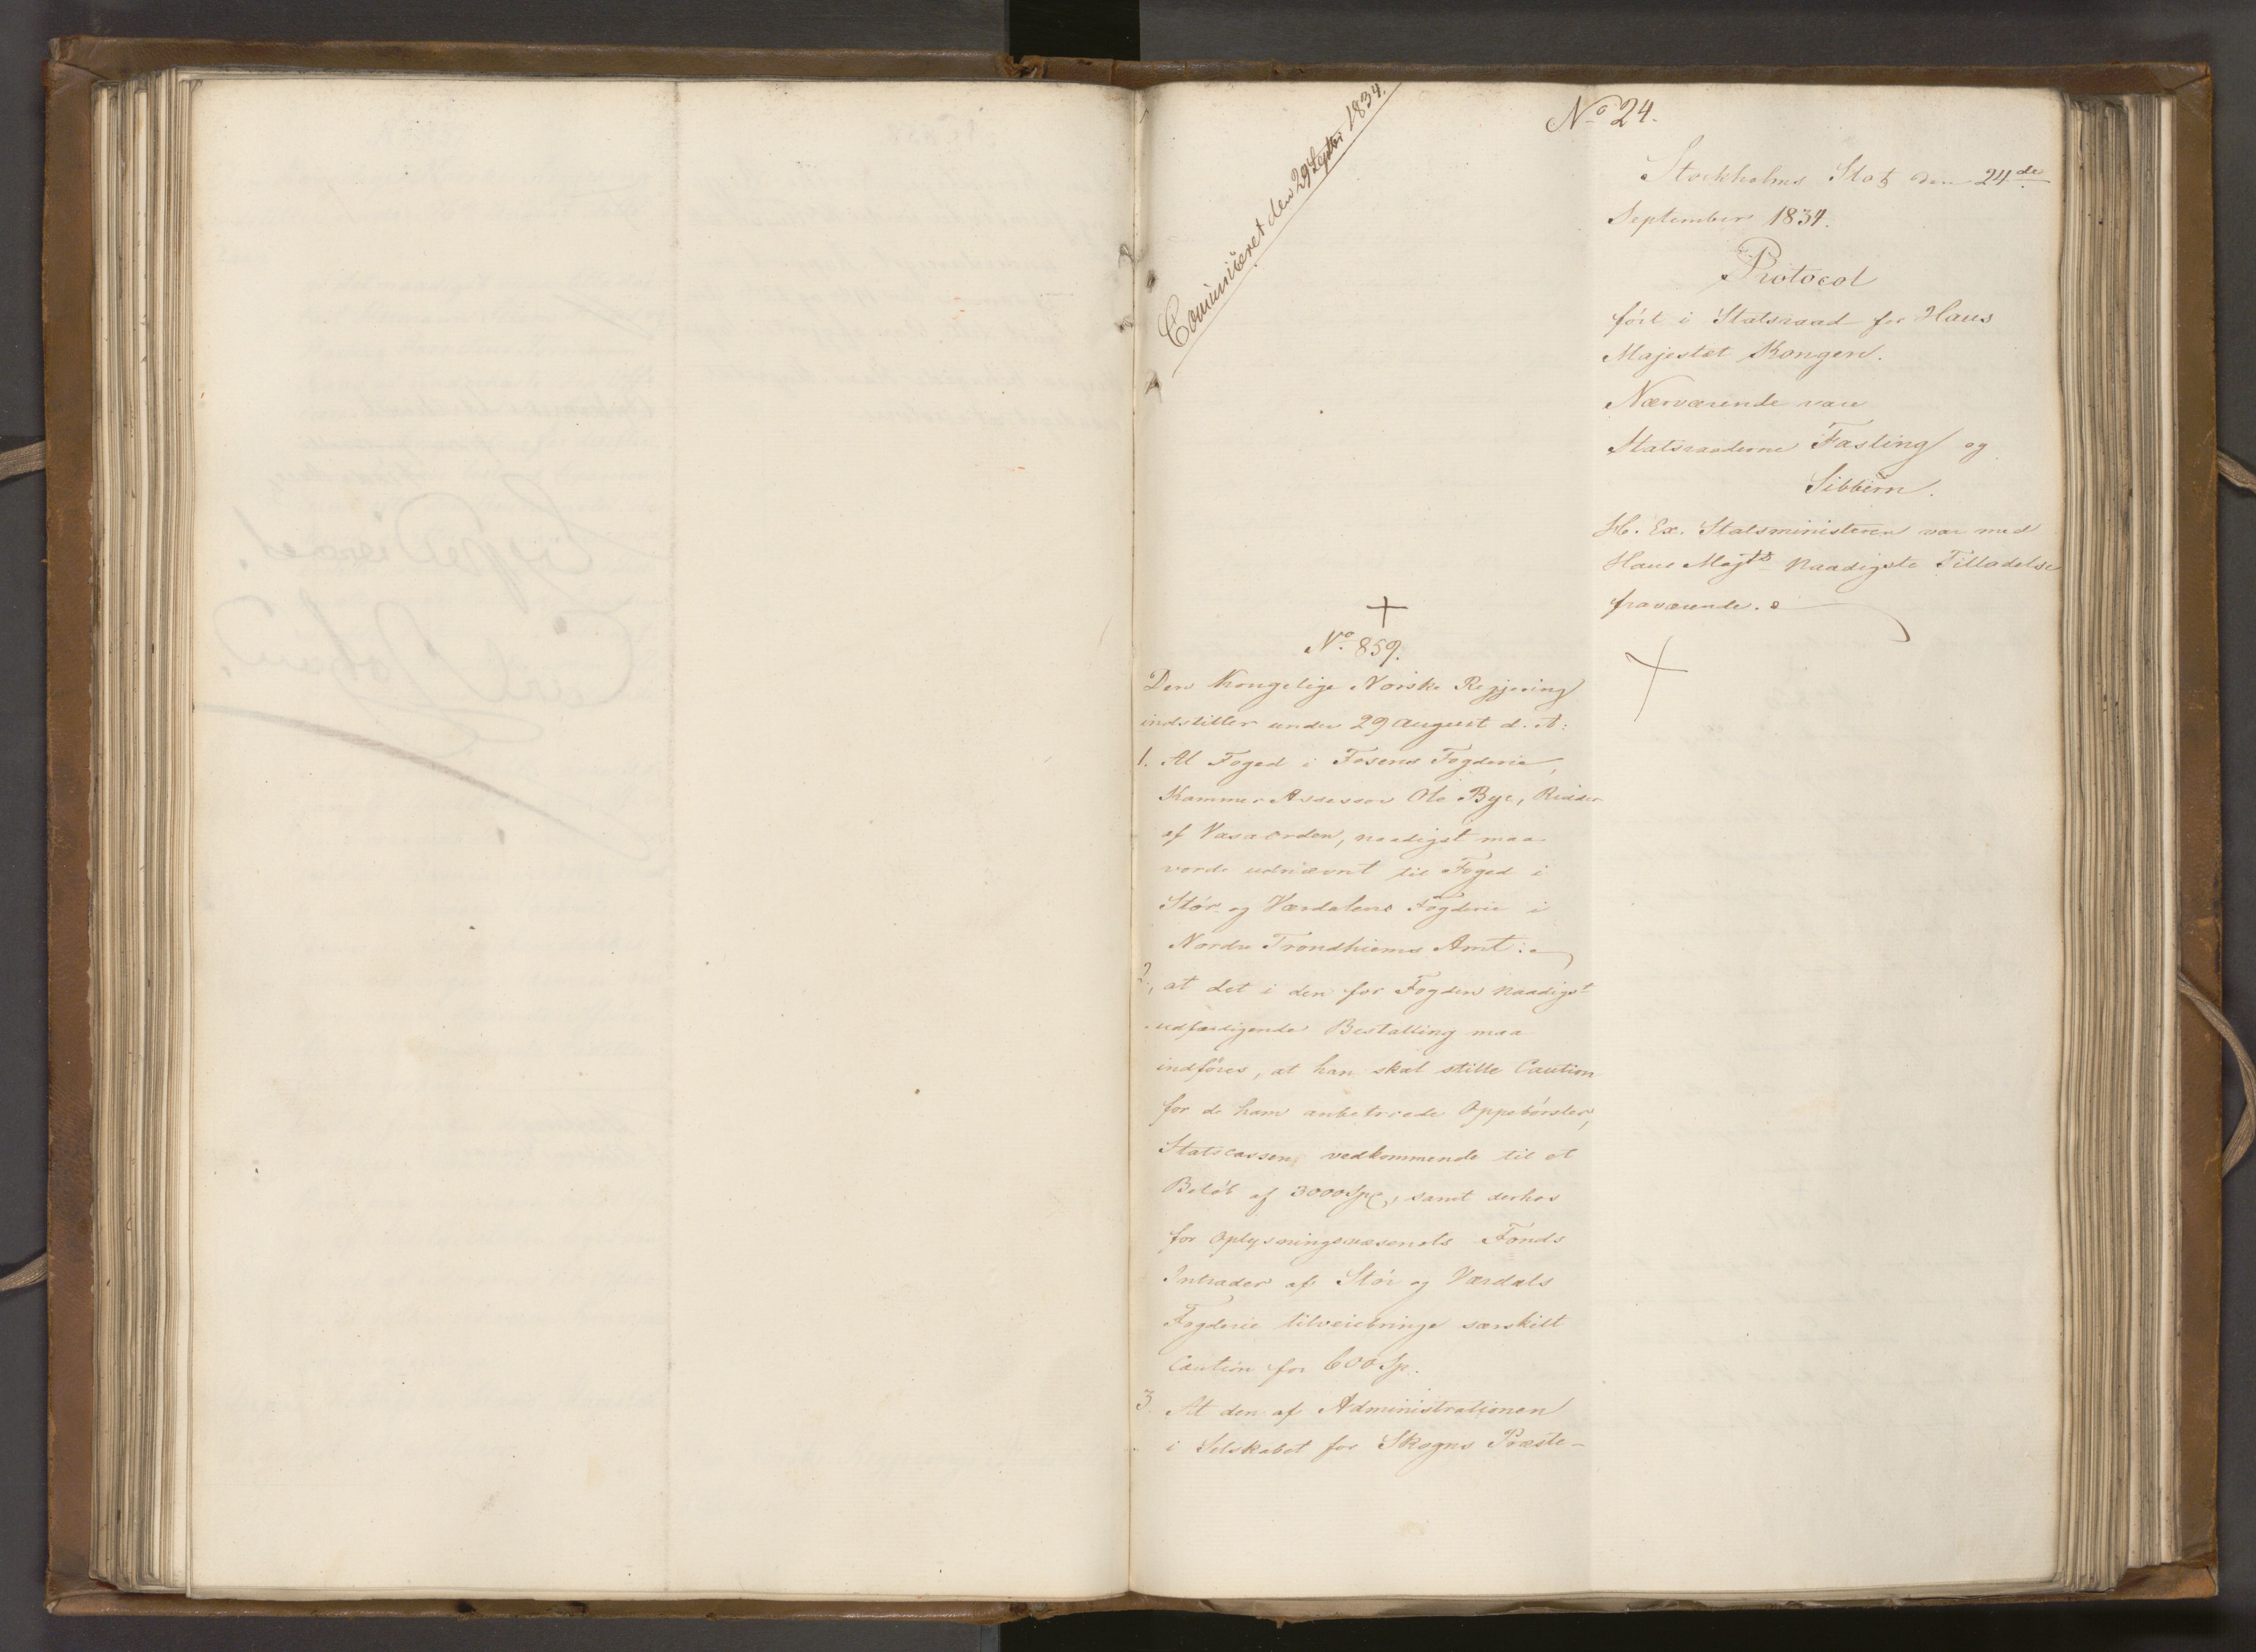 Communiceret den 29 Septbr 1834.
No 24.
Stockholms Slot den 24de
September 1834.
Protocol
fört i Statsraad for Hans
Majestæt Kongen.
Nærværende vare
Statsraaderne Fasting og
Sibbern.
H. Ex. Statsministeren var med
Hans Majts naadigste Tilladelse
fraværende.
No. 859.
Den Kongelige Norske Regjering
indstiller under 29 August d. A:
1. At Foged i Fosens Fogderie,
Kammer Assessor Ole Bye, Ridder
af Vasaorden, naadigst maa
vorde udnævnt til Foged i
Stör og Værdalens Fogderie i
Nordre Trondhiems Amt:
2, at det i den for Fogden naadigst
udfærdigende Bestalling maa
indföres, at han skal stille Caution
for de ham anbetroede Oppebörsler,
Statscassen vedkommende til et
Belöb af 3000 Sp, samt derhos
for Oplysningsvæsenets Fonds
Intrader af Stör og Værdals
Fogderie tilveiebringe særskilt
Caution for 600 Sp.
3. At den af Administrationen
i Selskabet for Skogns Præste-